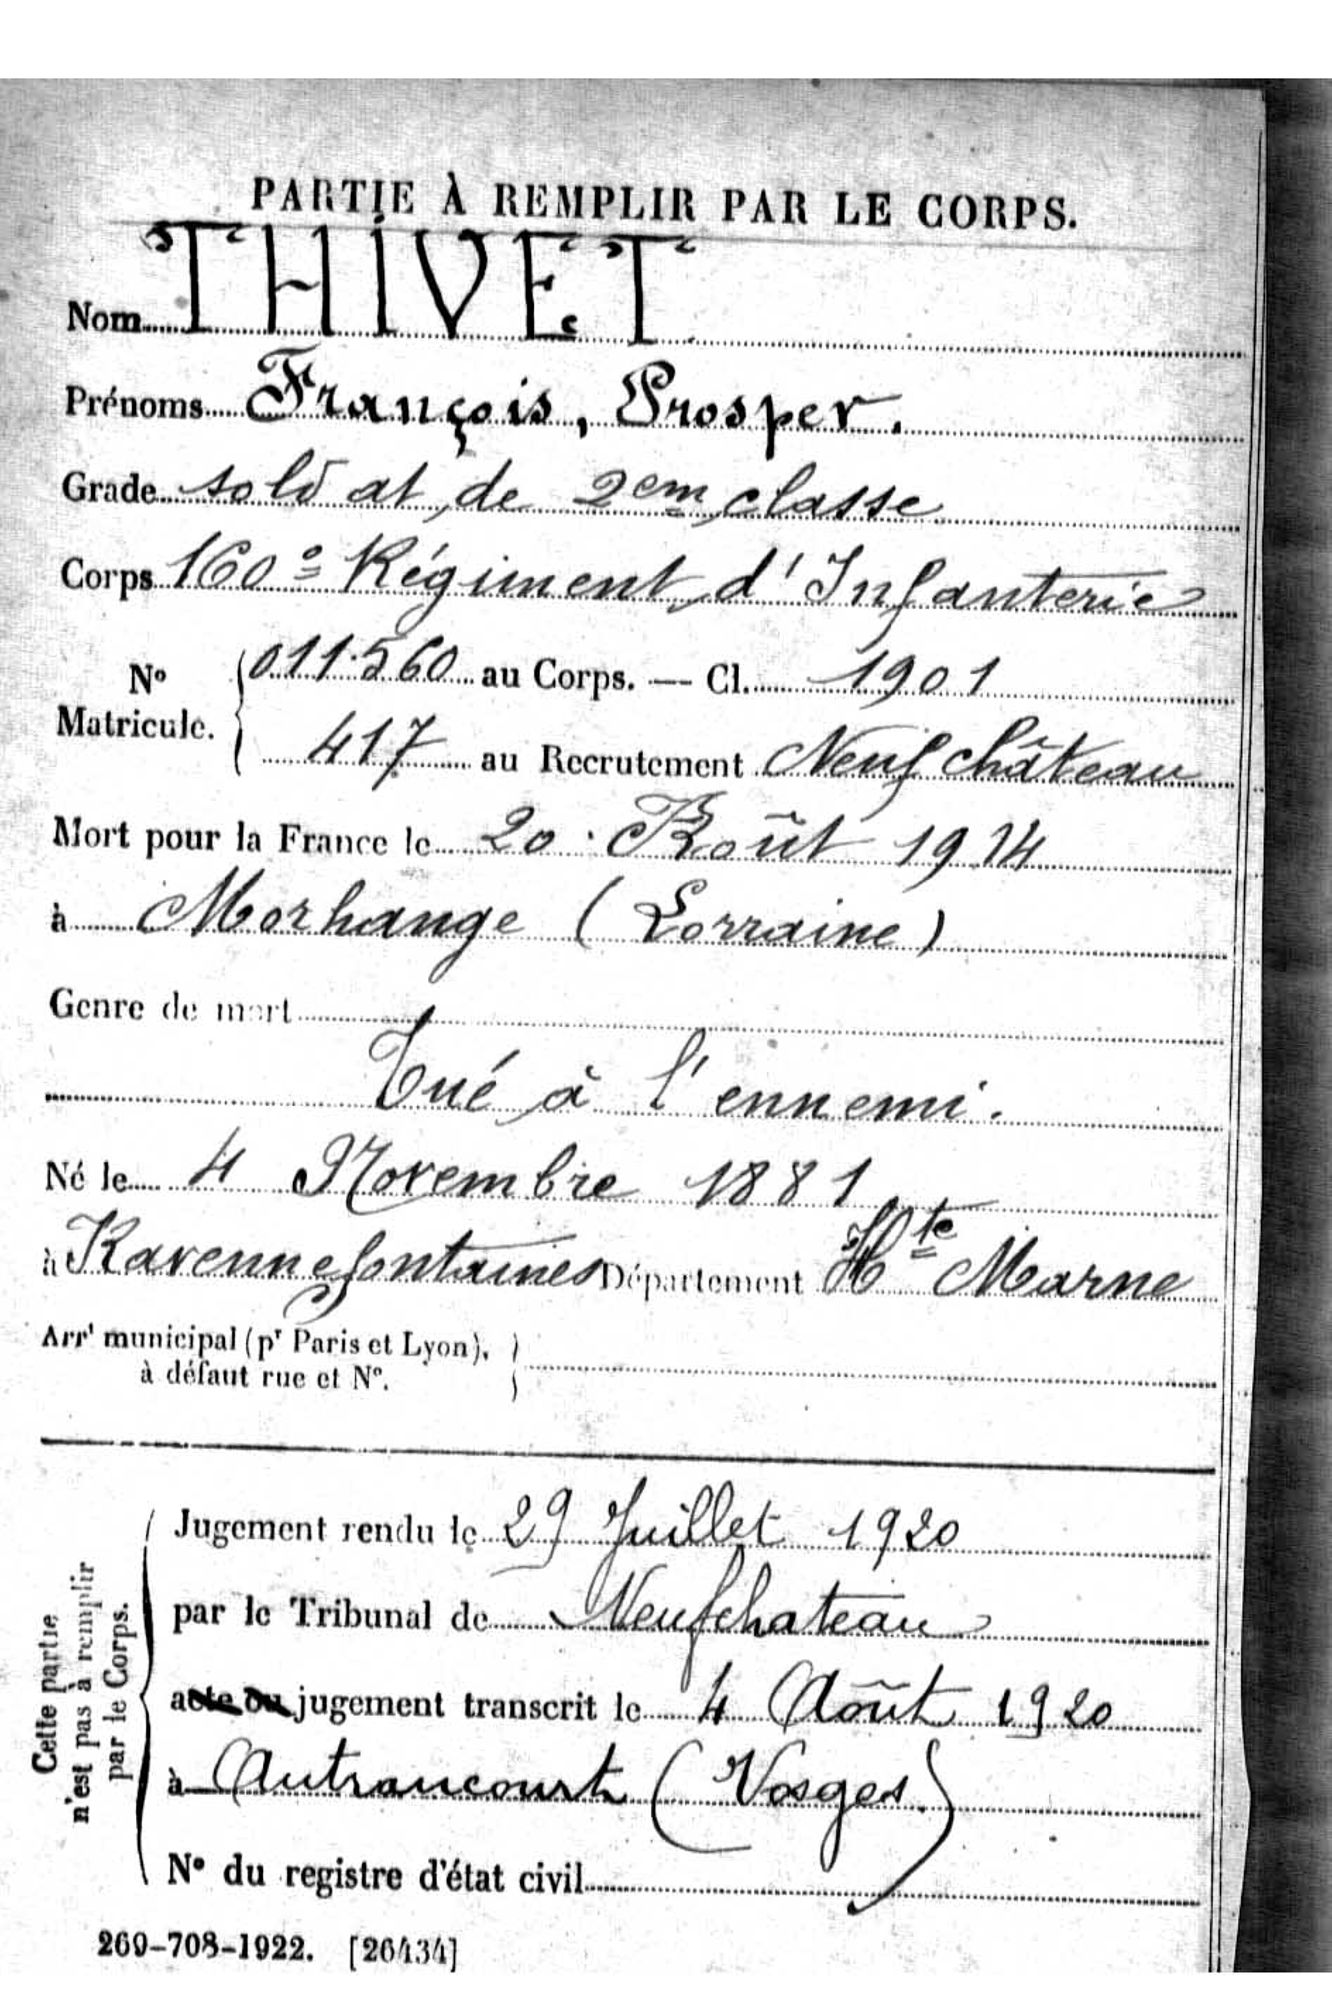 PARTIE À REMPLIR PAR LE CORPS.
Nom THIVET
Prénoms François, Prosper.
Grade soldat de 2em classe
Corps 160e Régiment d'Infanterie
No Matricule. 011.560 au Corps. — Cl. 1901
417 au Recrutement Neufchâteau
Mort pour la France le 20 Août 1914
à Morhange (Lorraine)
Genre de mort
Tué à l'ennemi.
Né le 4 Novembre 1881
à Ravennefontaines Département Hte Marne
Arrt municipal (pr Paris et Lyon),
à défaut rue et No.
Cette partie
n'est pas à remplir
par le Corps.
Jugement rendu le 29 Juillet 1920
par le Tribunal de Neufchateau
acte ou jugement transcrit le 4 Août 1920
à Autrancourt (Vosges)
No du registre d'état civil
269-708-1922. [26434]